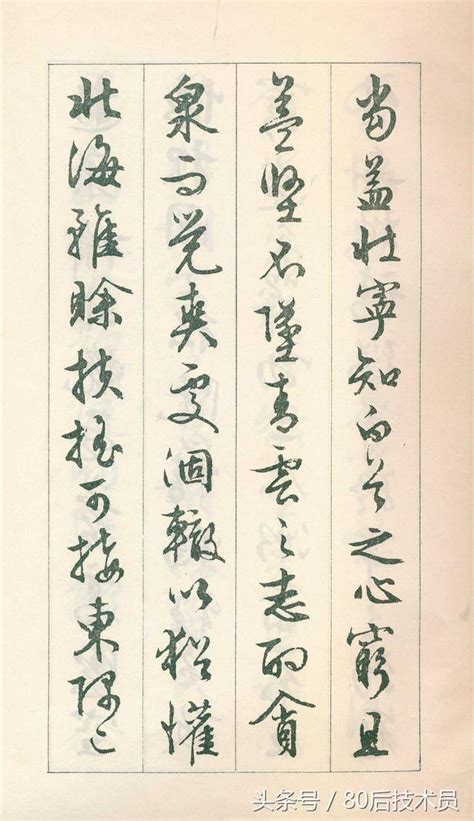 當益壯寧知白首之心窮且
益堅不墜青雲之志酌貪
泉而覺爽處涸轍以猶懽
北海雖賒扶搖可接東隅已
头条号 / 80后技术员